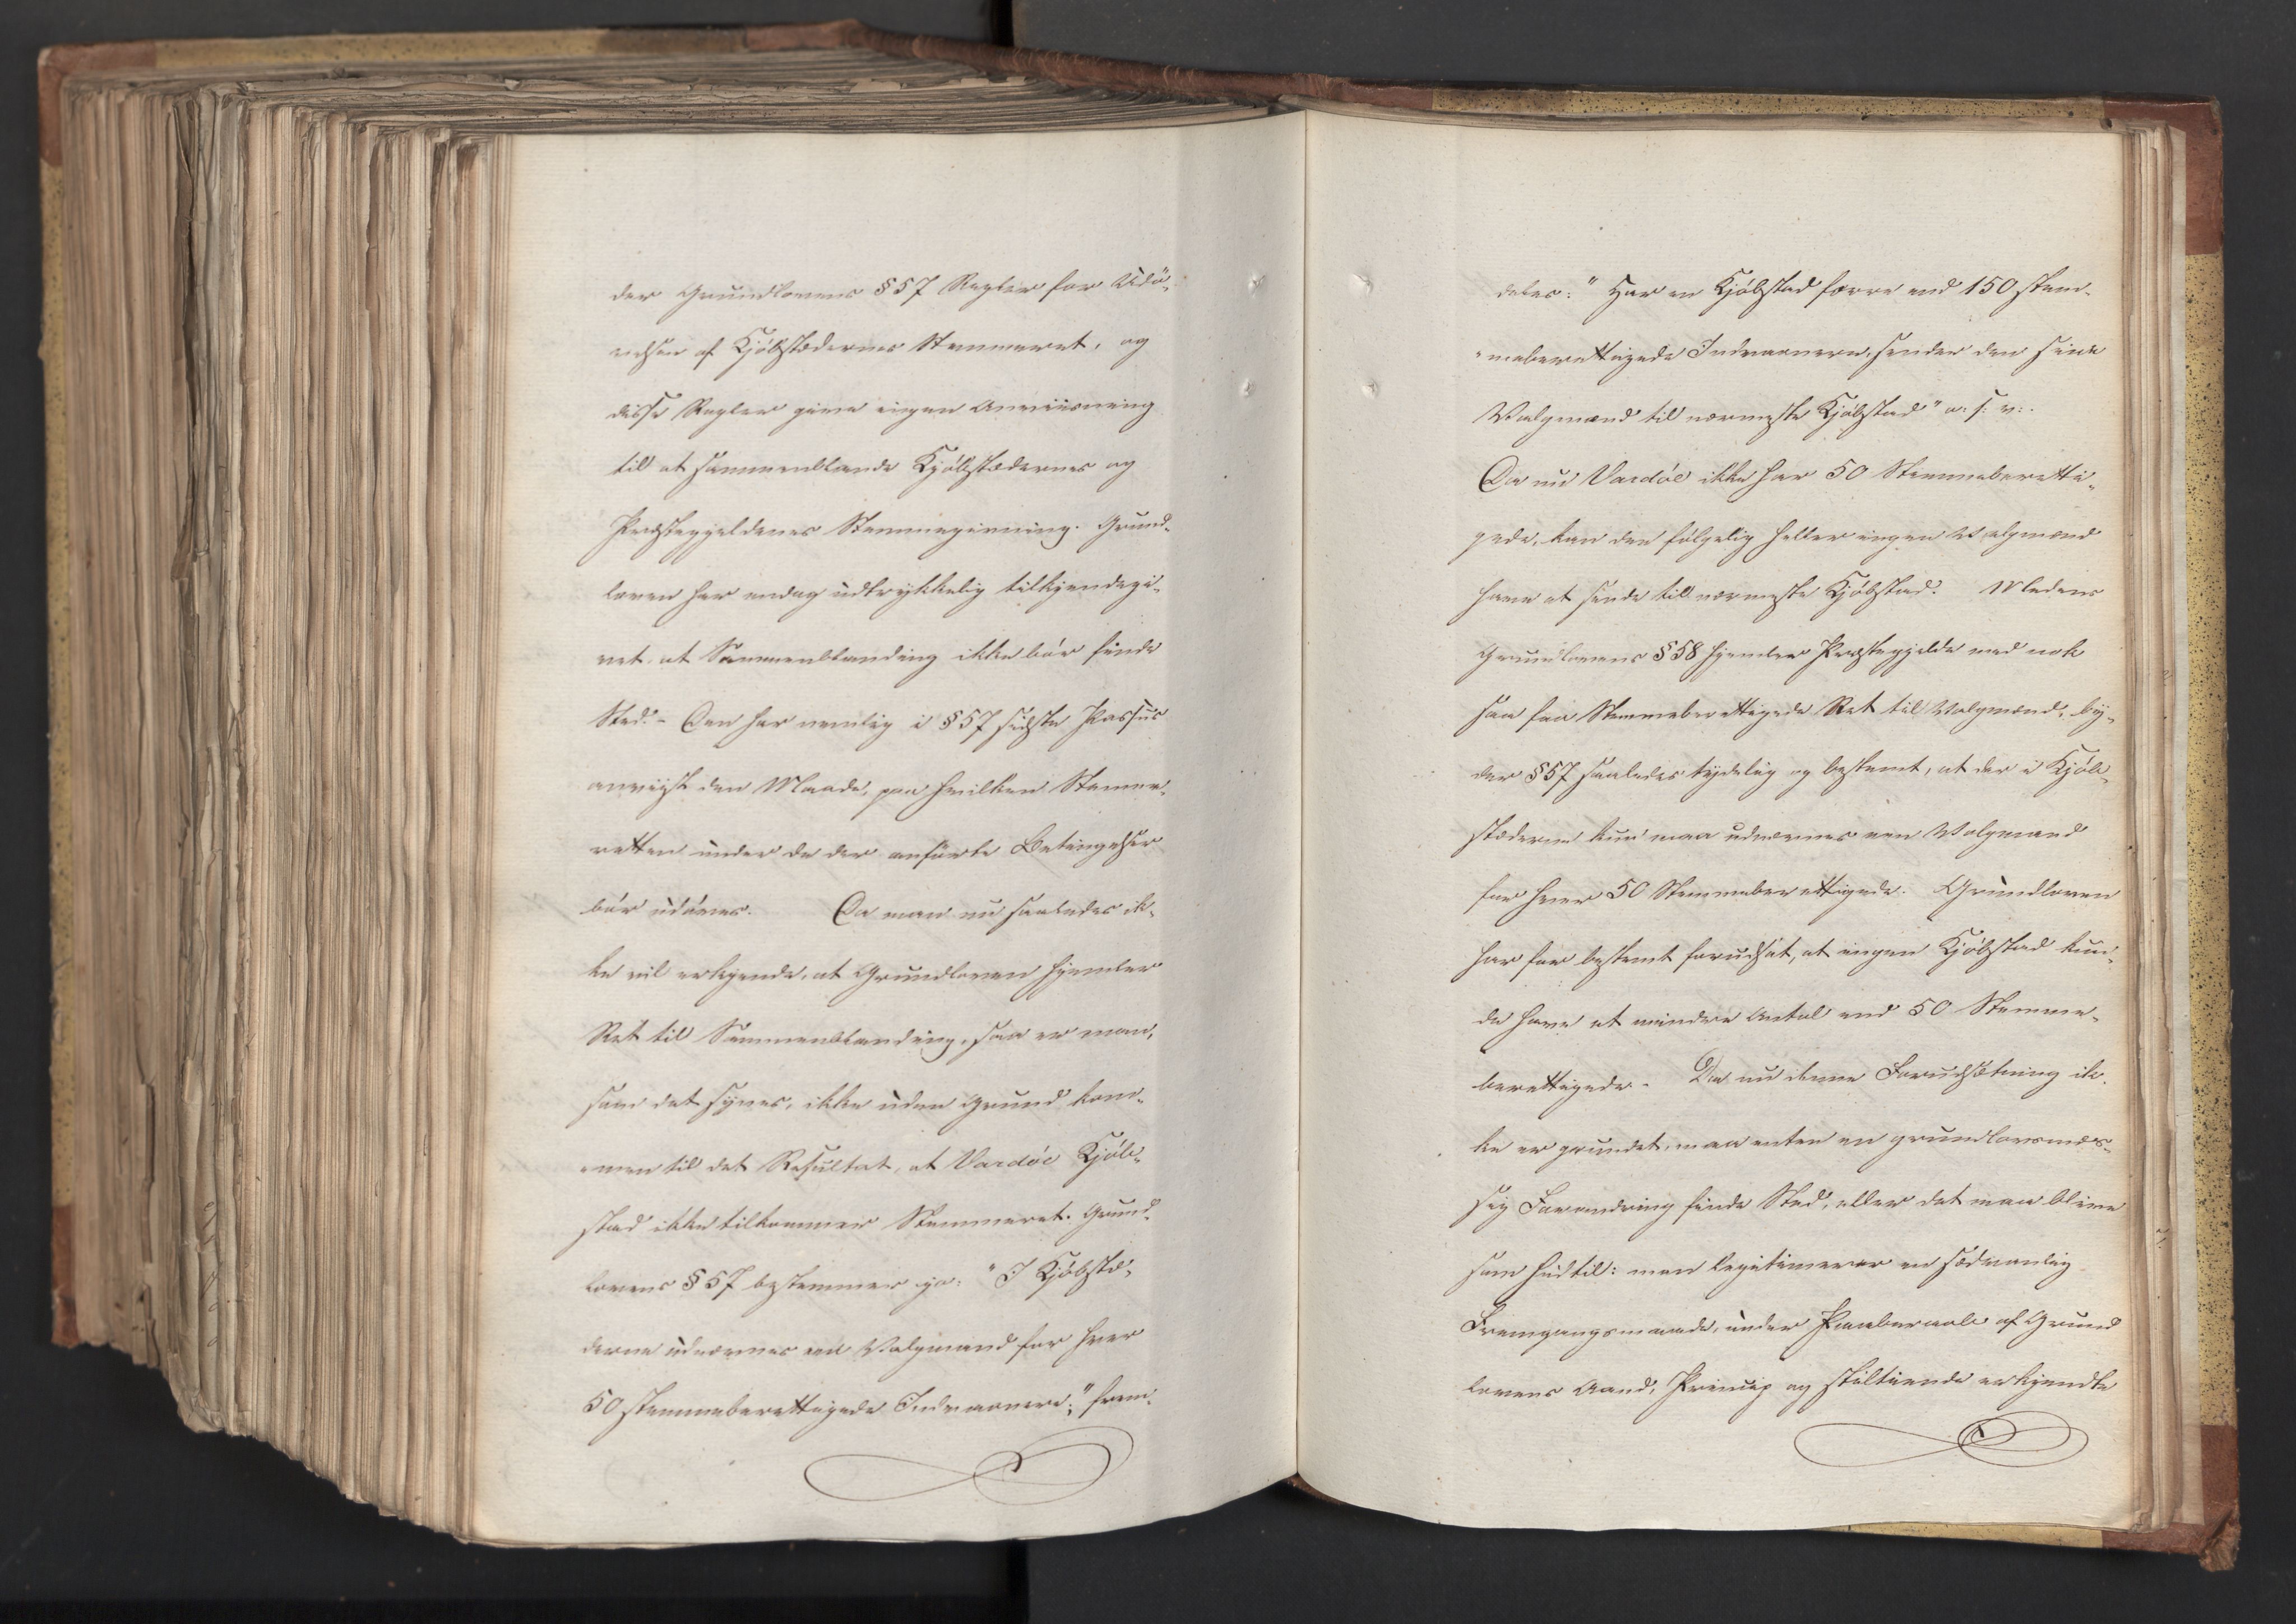 der Grundlovens § 57 Regler for Udø-
velsen af Kjøbstædernes Stemmeret, og
disse Regler give ingen Anviisning
til at sammenblande Kjøbstædernes og
Præstegjeldenes Stemmegivning. Grund-
loven har endog udtrykkelig tilkjendegi-
vet, at Sammenblanding ikke bör finde
Sted. - Den har nemlig i § 57 sidste Passus
anviist den Maade, paa hvilken Stemme-
retten under de der anförte Betingelser
bör udöves. Da man nu saaledes ik-
ke vil erkjende, at Grundloven hjemler
Ret til Sammenblanding, saa er man,
som det synes, ikke uden Grund kom-
men til det Resultat, at Vardöe Kjöb-
stad ikke tilkommer Stemmeret. Grund-
lovens § 57 bestemmer jo: "I Kjöbstæ-
derne udnævnes een Valgmand for hver
50 stemmeberettigede Indvaanere;" frem-
deles: "Har en Kjöbstad færre end 150 stem-
"meberettigede Indvaanere, sender den sine
Valgmænd til nærmeste Kjöbstad" o: s: v:.
Da nu Vardöe ikke har 50 Stemmeberetti-
gede, kan den fölgelig heller ingen Valgmænd
have at sende til nærmeste Kjöbstad. Medens
Grundlovens § 58 hjemler Præstegjelde med nok
saa faa Stemmeberettigede Ret til Valgmænd, by-
der § 57 saaledes tydelig og bestemt, at der i Kjöb-
stæderne kun maa udnævnes een Valgmand
for hver 50 Stemmeberettigede. Grundloven
har for bestemt forudsat, at ingen Kjöbstad kun-
de have et mindre Antal end 50 Stemme-
berettigede. Da nu denne Forudsætning ik-
ke er grundet, maa enten en grundlovsmæs-
sig Forandring finde Sted, eller det maa blive
som hidtil: man legitimerer en sædvanlig
Fremgangsmaade, under Paaberaab af Grund
lovens Aand, Princip og stiltiende erkjendte